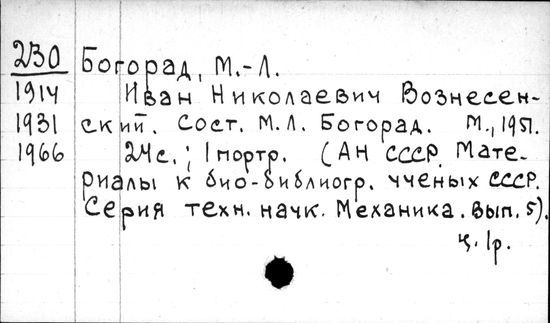 230 Богорад, М.-Л.
1914 Иван Николаевич Вознесен-
1931 ский. Сост. М.Л. Богорад. М., 1951.
1966 24с.; 1 портр. (АН СССР. Мате-
риалы к био-библиогр. ученых СССР.
Серия техн. наук. Механика. Вып. 5).
ц. 1р.